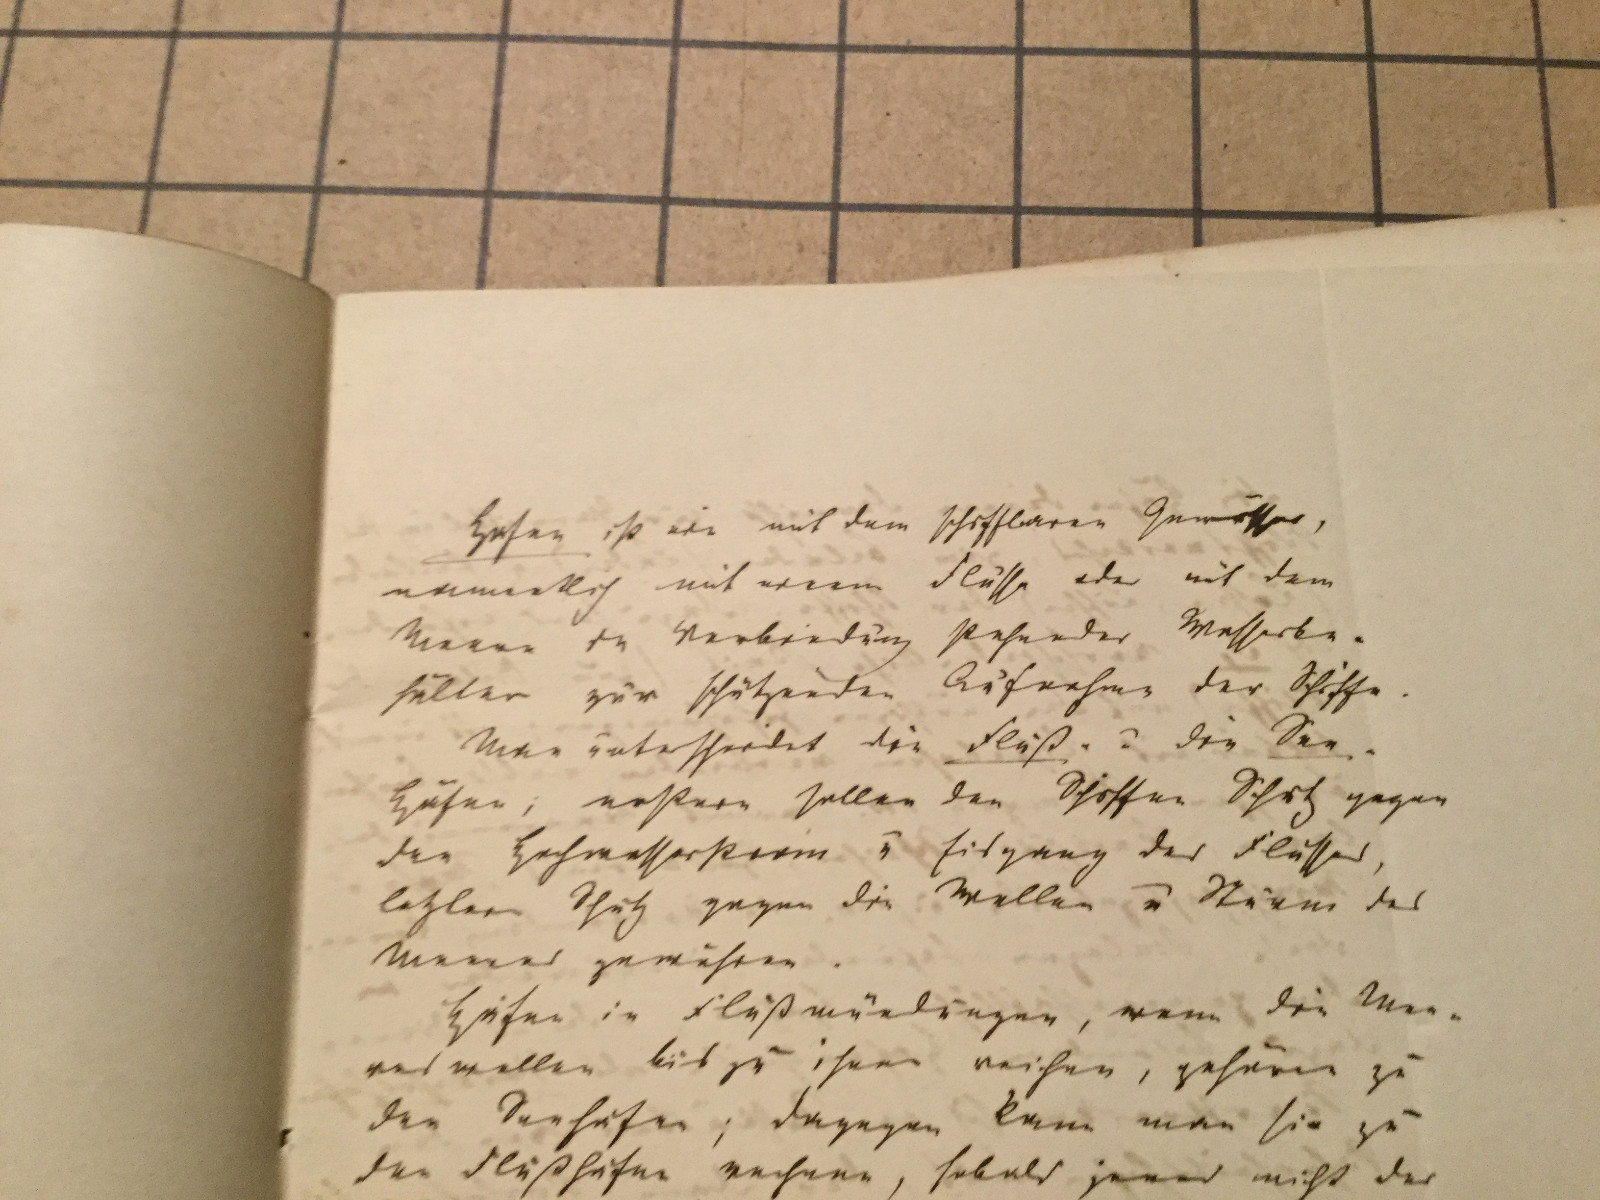 Hafen ist ein mit dem schiffbaren Gewässer,
namentlich mit einem Flusse oder mit dem
Meere in Verbindung stehender Wasserbe-
hälter zur schützenden Aufnahme der Schiffe.
Man unterscheidet die Fluß- u die See-
Häfen; erstere sollen den Schiffen Schutz gegen
den Hochwasserstrom u Eisgang des Flusses,
letztere Schutz gegen die Wellen u Stürme des
Meeres gewähren.
Häfen in Flußmündungen, wenn die Mee-
reswellen bis zu ihnen reichen, gehören zu
den Seehäfen; dagegen kann man sie zu
den Flußhäfen rechnen, sobald jenes nicht der